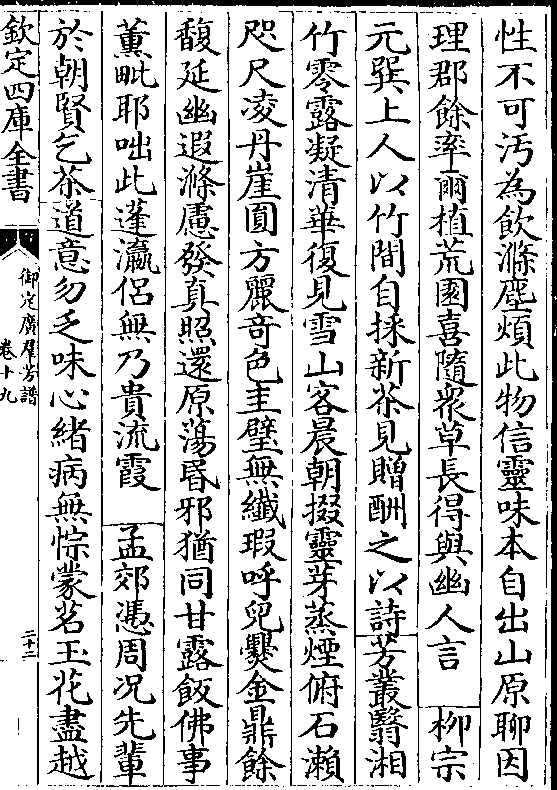 性不可汚為飲滌塵煩此物信靈味本自出山原聊因
理郡餘率爾植荒園喜隨衆草長得與幽人言　柳宗
元巽上人以竹間自採新茶見贈酬之以詩芳叢翳湘
竹零露凝清華復見雪山客晨朝掇靈芽蒸煙俯石瀨
咫尺凌丹崖圓方麗竒色圭璧無纖瑕呼兒爨金鼎餘
馥延幽遐滌慮發真照還原蕩昏邪猶同甘露飯佛事
薰毗耶咄此蓬瀛侣無乃貴流霞　孟郊憑周况先輩
於朝賢乞茶道意勿乏味心緒病無悰蒙茗玉花盡越
欽定四庫全書
御定廣羣芳譜
卷十九
二十二